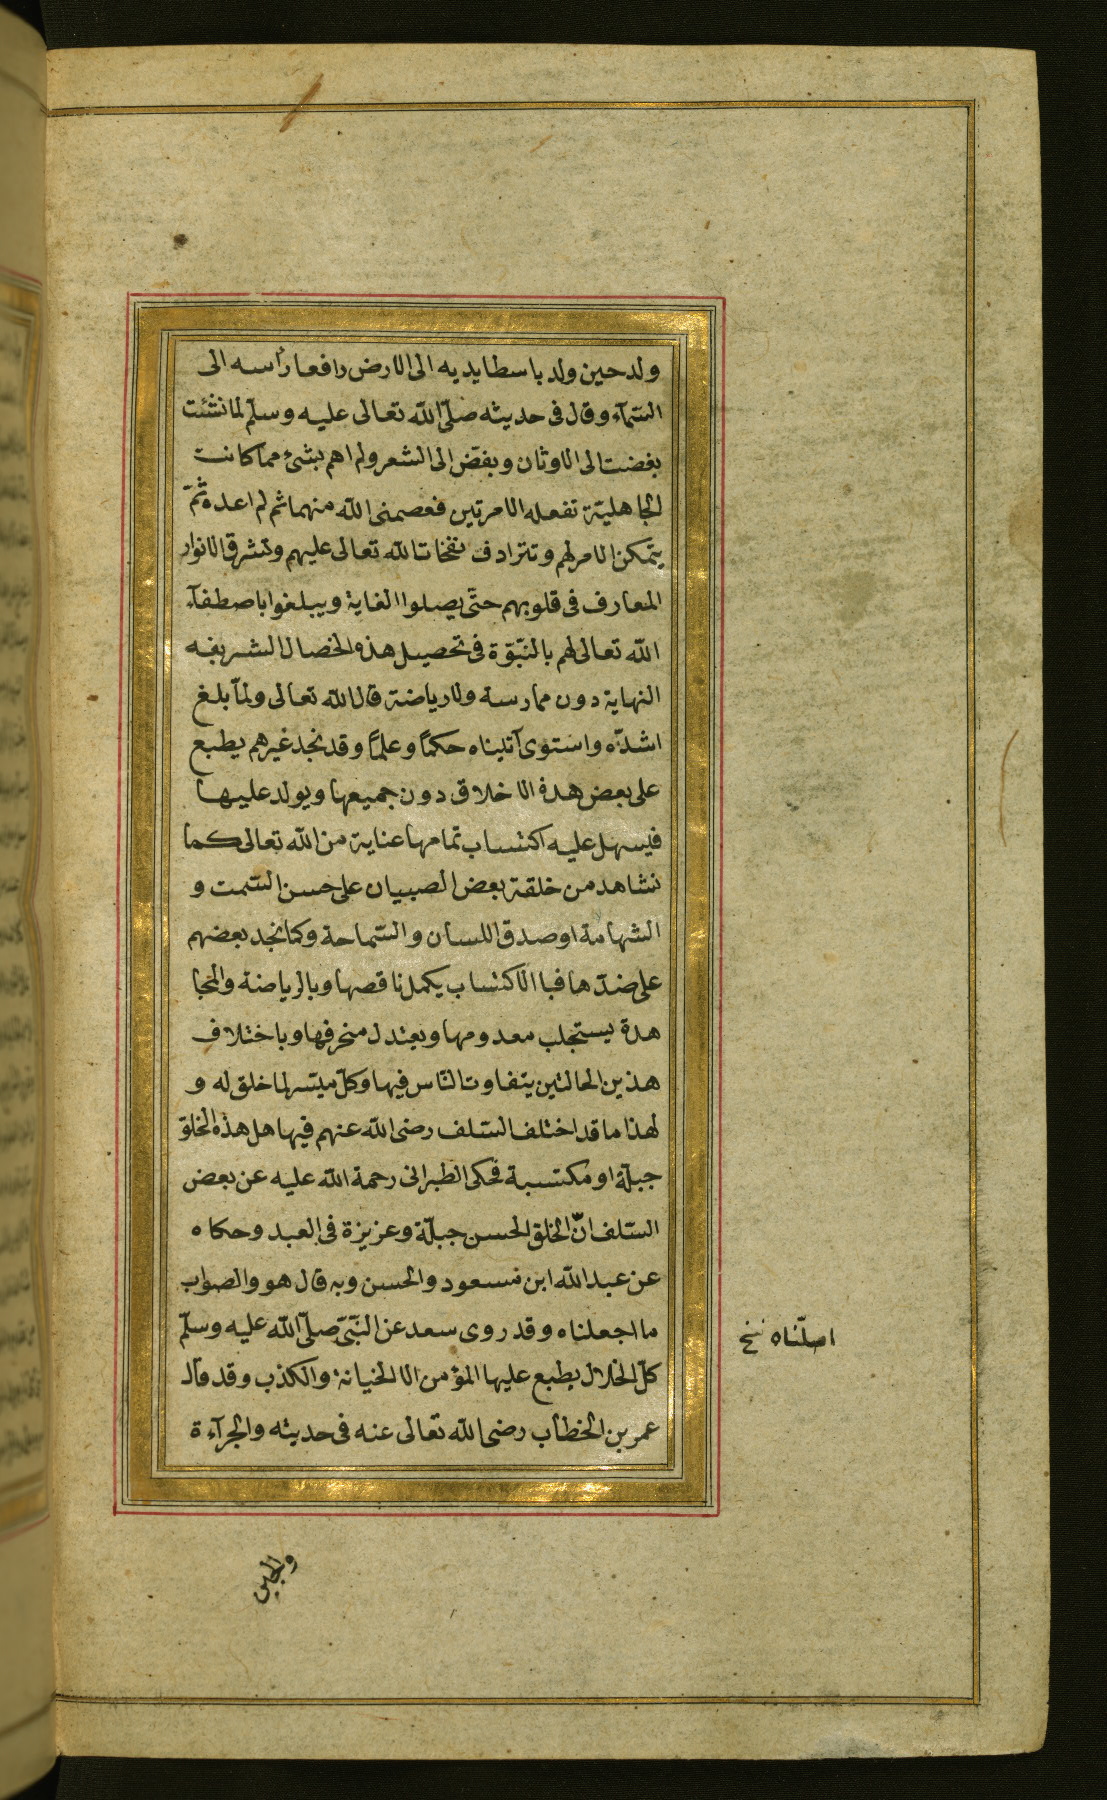 ولد حين ولد باسطا يديه الى الارض رافعا رأسه الى
السّمآء وقال فى حديثه صلّى اللّه تعالى عليه وسلّم لما نشئت
بغضت الى الاوثان وبغّض الى الشعر ولم اهم بشئ مما كانت
الجاهليّة تفعله الا مرتين فعصمنى اللّه منهما ثم لم اعده ثمّ
يتمكن الامر لهم وتترادف نفخات اللّه تعالى عليهم وتشرق الانوار
المعارف فى قلوبهم حتّى يصلوا الغاية ويبلغوا باصطفآء
اللّه تعالى لهم بالنّبوّة فى تحصيل هذه الخصال الشريفه
النهاية دون ممارسة ولا رياضة قال اللّه تعالى ولمّا بلغ
اشدّه واستوى آتيناه حكمًا وعلمًا وقد نجد غيرهم يطبع
على بعض هذه الاخلاق دون جميعها ويولد عليها
فيسهل عليه اكتساب تمامها عناية من اللّه تعالى كما
نشاهد من خلقة بعض الصبيان على حسن السّمت و
الشهامة او صدق اللسان والسّماحة وكما نجد بعضهم
على ضدّها فبا الاكتساب يكمل ناقصها وبالرياضة والمجا
هدة يستجلب معدومها ويعتدل منحرفها وباختلاف
هذين الحالتين يتفاوت النّاس فيها وكلّ ميسّر لما خلق له و
لهذا ما قد اختلف السّلف رضى اللّه عنهم فيها هل هذه الخلق
جبلّة او مكتسبة فحكى الطبرانى رحمة اللّه عليه عن بعض
السّلف انّ الخلق الحسن جبلّة وعزيزة فى العبد وحكاه
عن عبد اللّه ابن مسعود والحسن وبه قال هو والصواب
ما اجعلناه وقد روى سعد عن النّبىّ صلّى اللّه عليه وسلّم
اصلّناه نسخ
كلّ الخلال يطبع عليها المؤمن الا الخيانة والكذب وقد قال
عمر بن الخطاب رضى اللّه تعالى عنه فى حديثه والجرآءة
والجبن